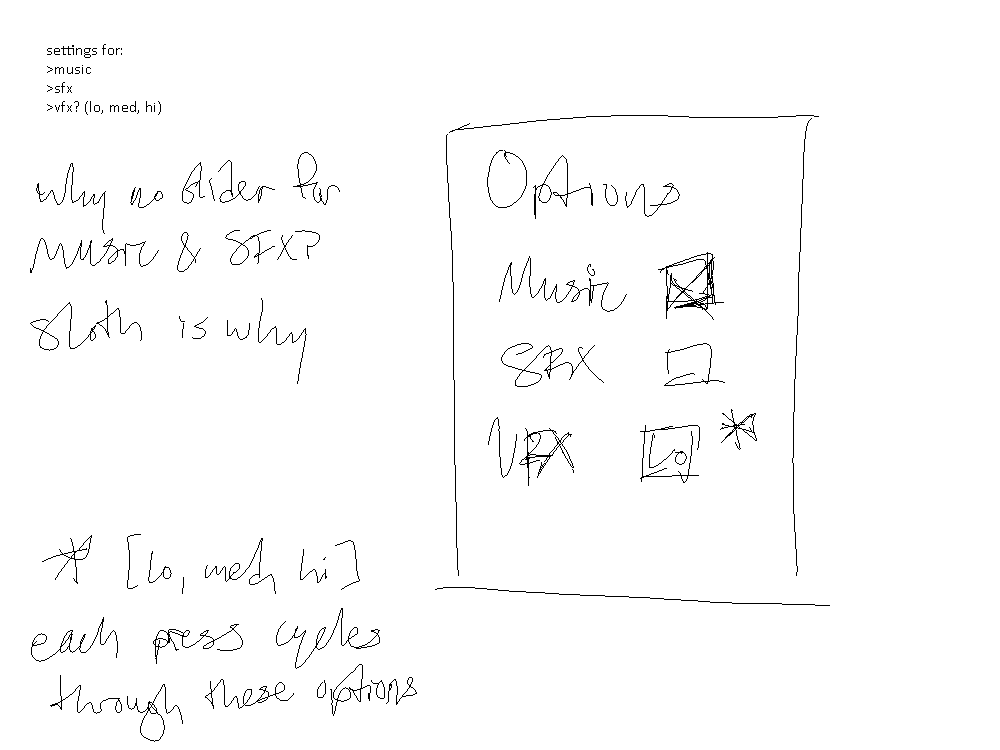 settings for:
>music
>sfx
>vfx? (lo, med, hi)
why no slider for
Music & SFX?
sloth is why
Options
Music
SFX
VFX Lo *
* [lo, med, hi]
each press cycles
through these options